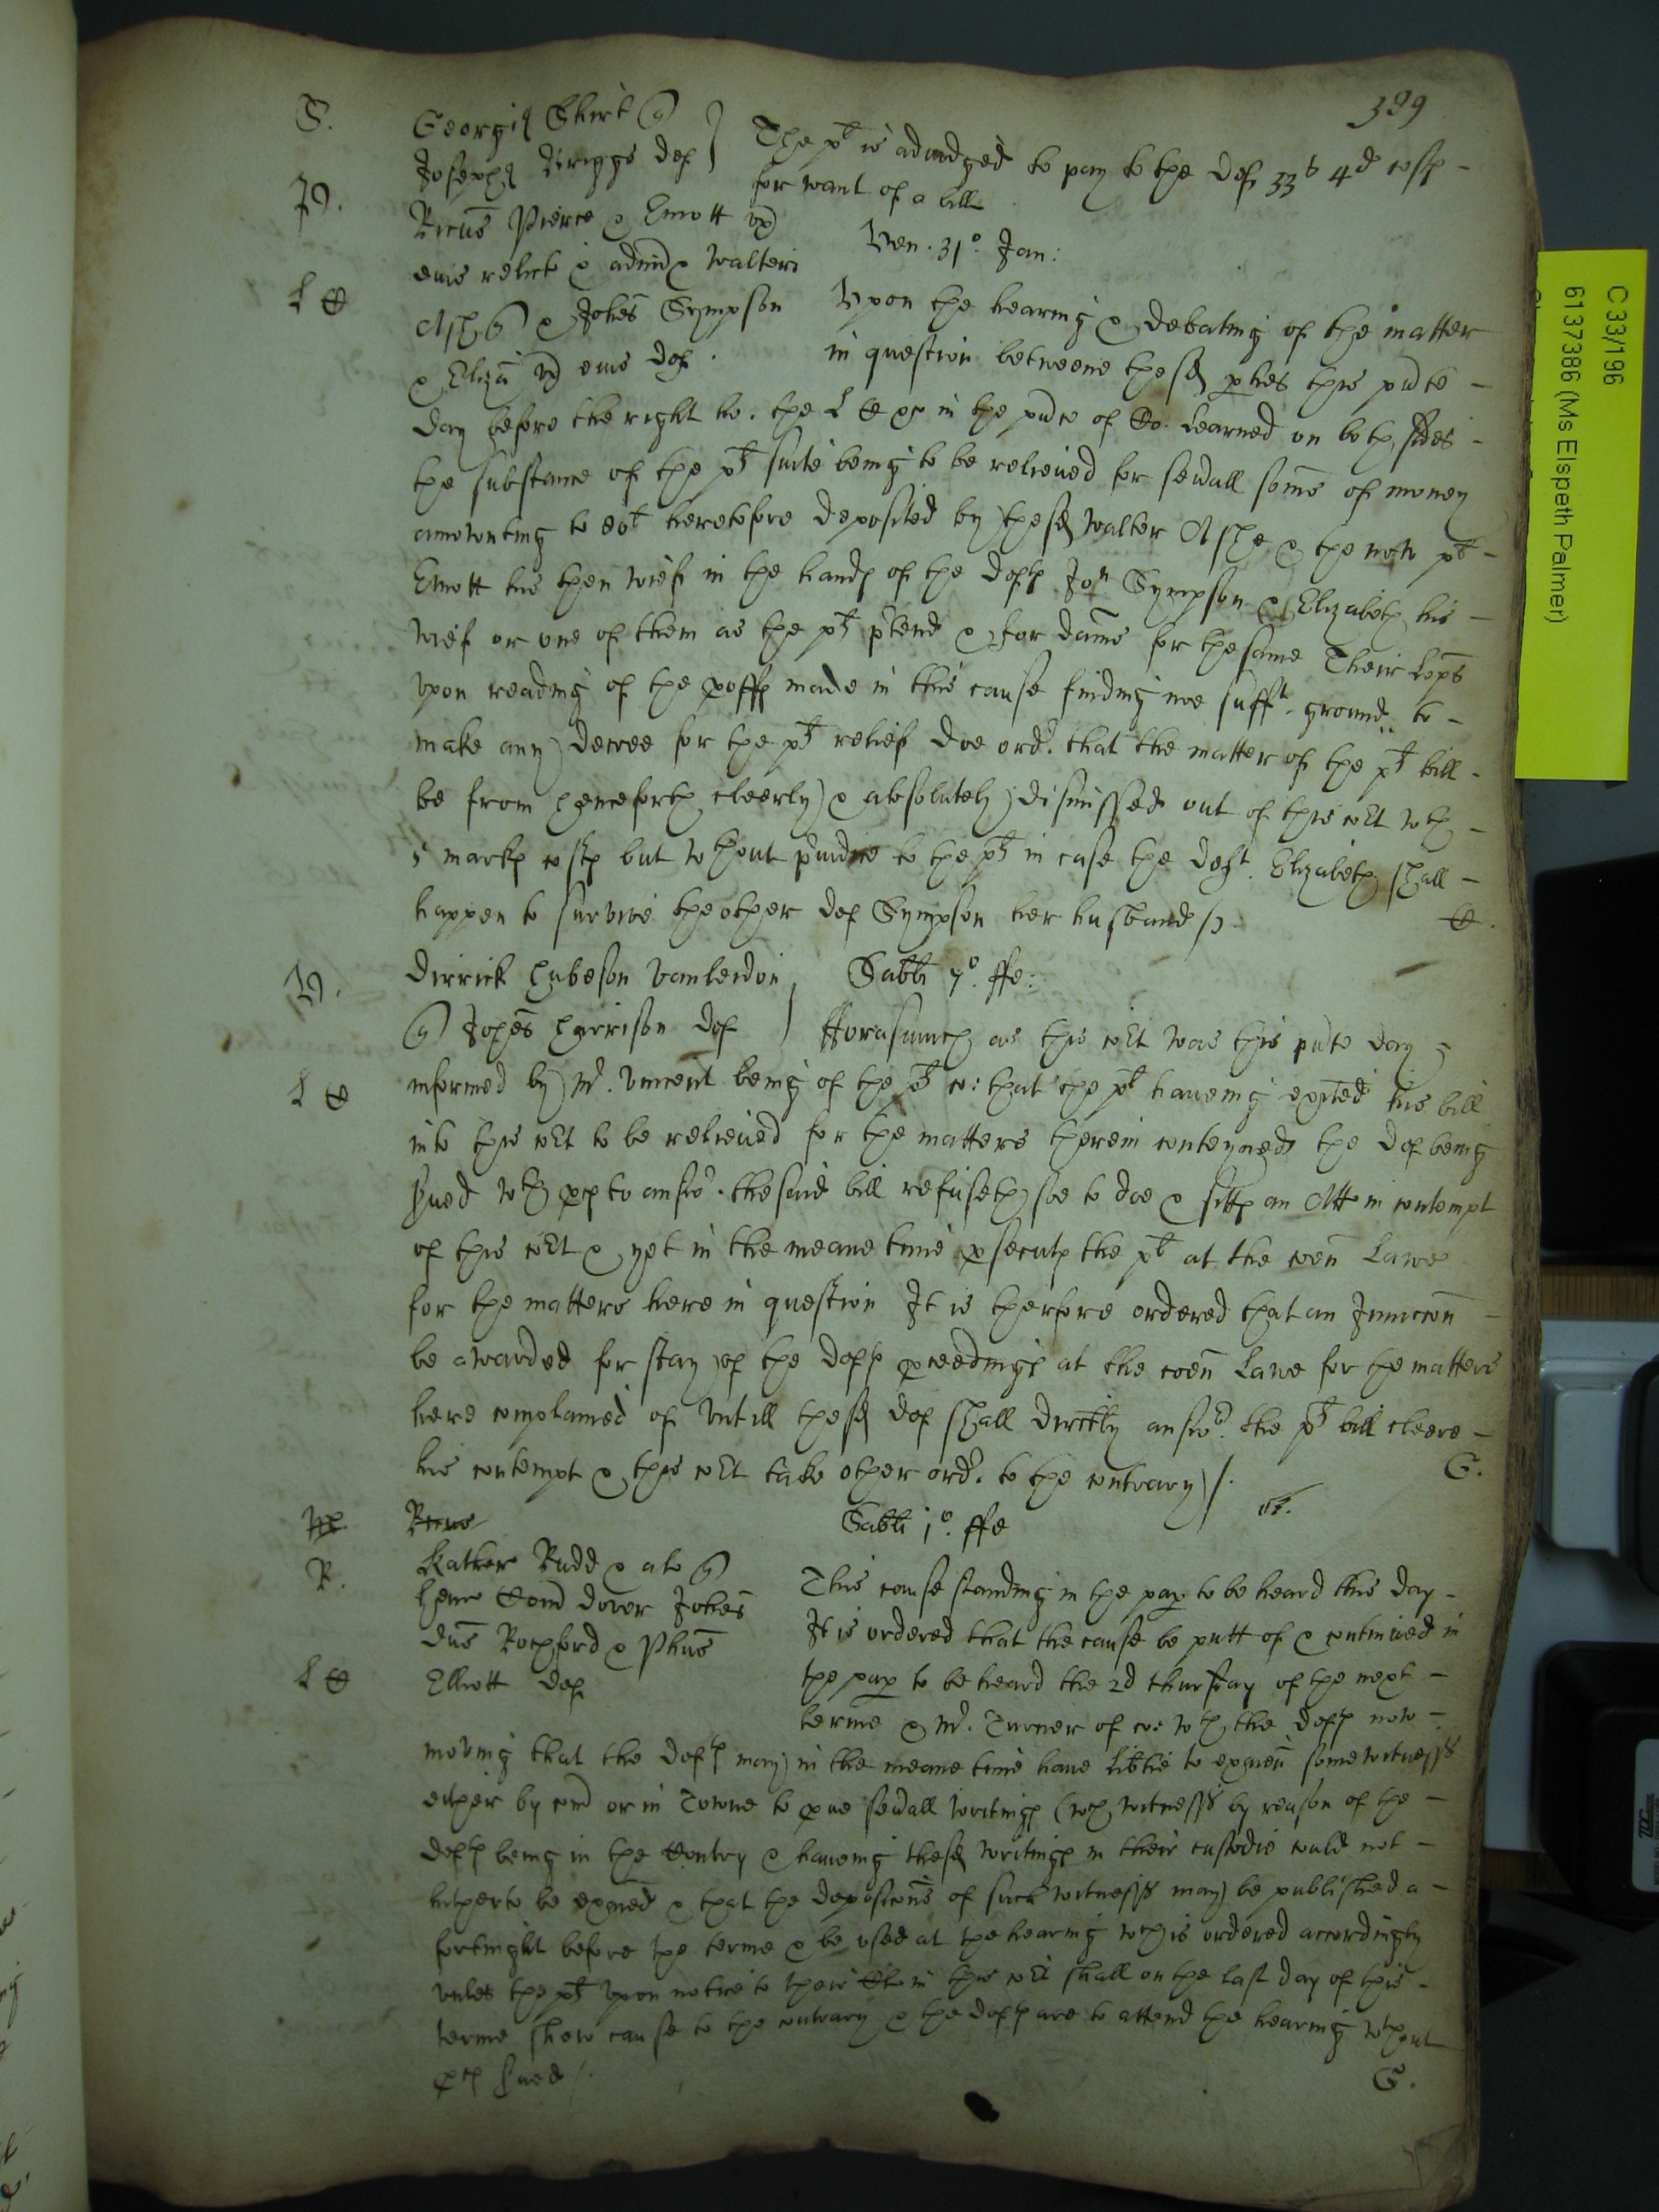 389
S. Georgi9 Skirt q
Joseph9 Briggs def } The plt is adiudged to pay to the def 33s 4d costs
for want of a bill
P. Ricus Pierce & Emott vx
eius relict & admx Walteri
Ven. 31o. Jan:
L C Ash q & Johes Sympson
& Eliza vx eius def.
Upon the hearing & debating of the matter
in question betweene thesd pties this pnte
day before the right ho: the L C &c in the pnce of Co. learned on both sides
the substance of the plts suite being to be relieued for seuall somes of money
amounting to 80l heretofore deposited by thesd Walter Ashe & the now plt
Emott his then wief in the hands of the defts Jon Sympson & Elizabeth his
wief or one of them as the plts ptend & for dams for thesame Their Lops
vpon reading of the proffs made in this cause finding noe sufft. ground to
make any decree for the plts relief doe ord. that the matter of the plts bill
be from henceforth cleerly & absolutely dismissed out of this cort wth
5 marks costs but wthout priudice to the plts in case the deft. Elizabeth shall
happen to survive theother def Sympson her husband /
C.
V. Dirrick Hubeson Vanleidon
q Johes Harrison def } Sabti 7o. ffe:
fforasmuch as this cort was this pnte day
L C informed by Mr. Vincent being of the plts co: that the plt haueing exhited his bill
into this cort to be relieued for the matters therein conteyned the def being
serued wth pces to answ. thesaid bill refuseth soe to doe & sitts an Att in contempt
of this cort & yet in the meane time prsecuts the plt at the coen Lawe
for the matters here in question It is therfore ordered that an Iniuccon
be awarded for stay of the defts pceedings at the coen Lawe for the matters
here complained of vntill thesd def shall directly answ. the plts bill cleere
his contempt & this cort take other ord. to the contrary /.
G.
Ricus
Sabti 1o. ffe
R. Kather Rudd & al q
Henr Com Dover Johes
Dns Rochford & Phus
L C Elliott def
This cause standing in the pap to be heard this day
It is ordered that the cause be putt of & continued in
the pap to be heard the 2d thursday of the next
terme & Mr. Turner of co: wth the defts now
moving that the defts may in the meane time haue libtie to exaien some witnesss
either by com or in Towne to proue seuall writings (wch witnesss by reason of the
defts being in the Contry & haueing thesd writings in their custodie could not
hitherto be exaied & that the deposicons of such witnesss may be published a
fortnight before the terme & be vsed at the hearing wch is ordered accordingly
vnles the plts vpon notice to their Cl in this cort shall on the last day of this
terme shew cause to the contrary & the defts are to attend the hearing wthout
pces serued /.
G.
C 33/196
6137386 (Ms Elspeth Palmer)